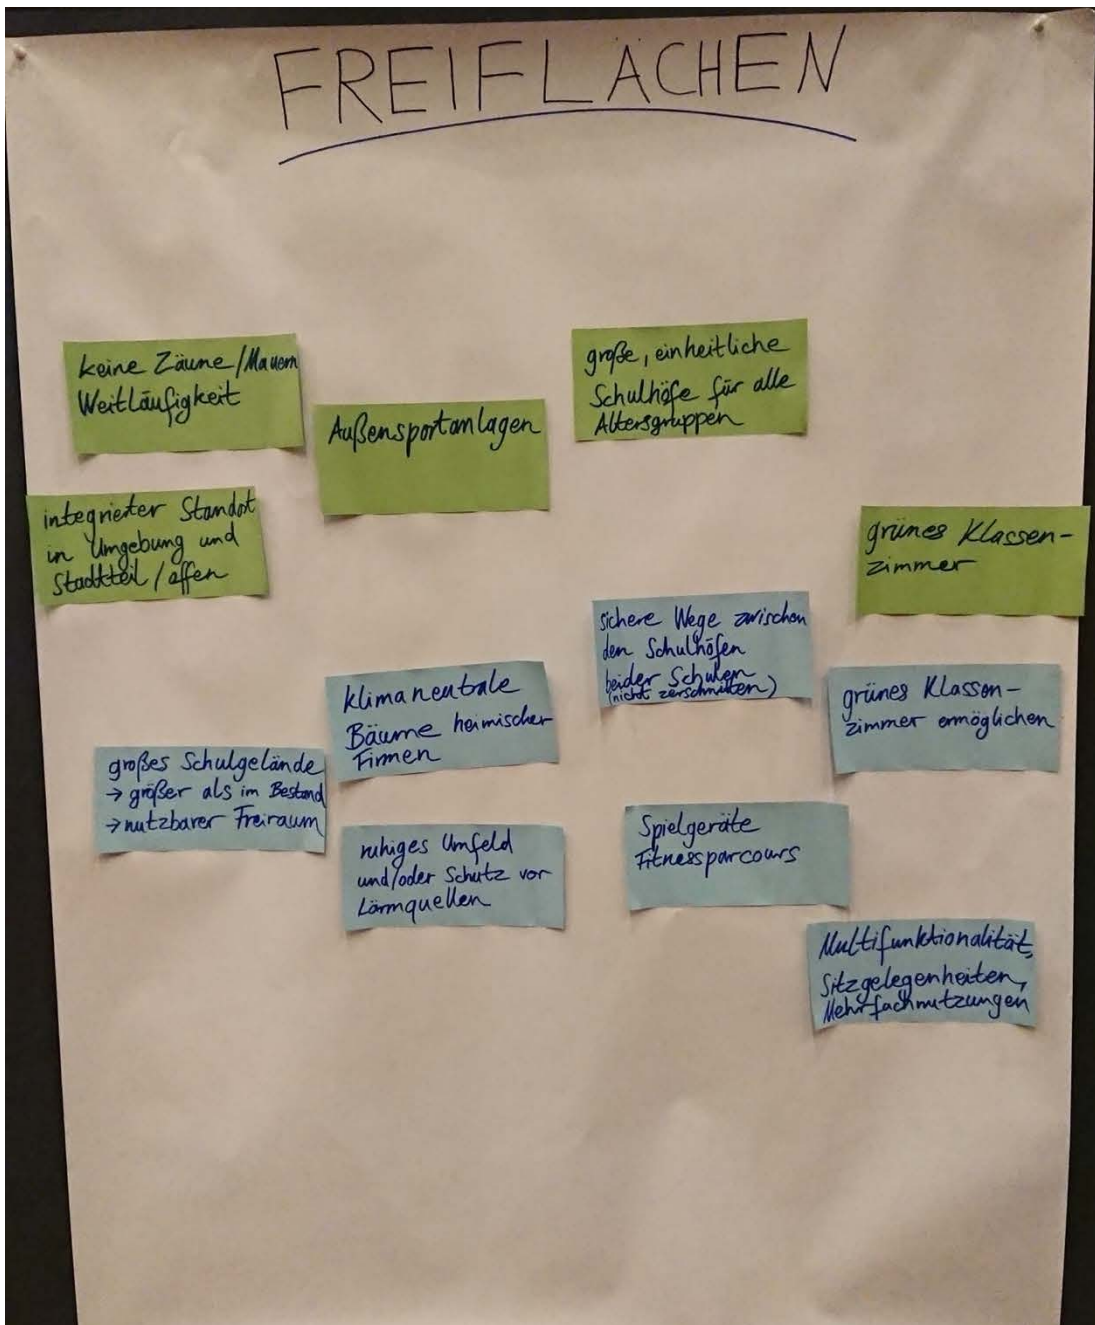 FREIFLÄCHEN
keine Zäune/Mauern
Weitläufigkeit
Außensportanlagen
große, einheitliche
Schulhöfe für alle
Altersgruppen
integrierter Standort
in Umgebung und
Stadtteil / offen
grünes Klassen-
zimmer
sichere Wege zwischen
den Schulhöfen
beider Schulen
(nicht zerschnitten)
klimaneutrale
Bäume heimischer
Firmen
grünes Klassen-
zimmer ermöglichen
großes Schulgelände
→ größer als im Bestand
→ nutzbarer Freiraum
ruhiges Umfeld
und/oder Schutz vor
Lärmquellen
Spielgeräte
Fitnessparcours
Multifunktionalität,
Sitzgelegenheiten,
Mehrfachnutzungen